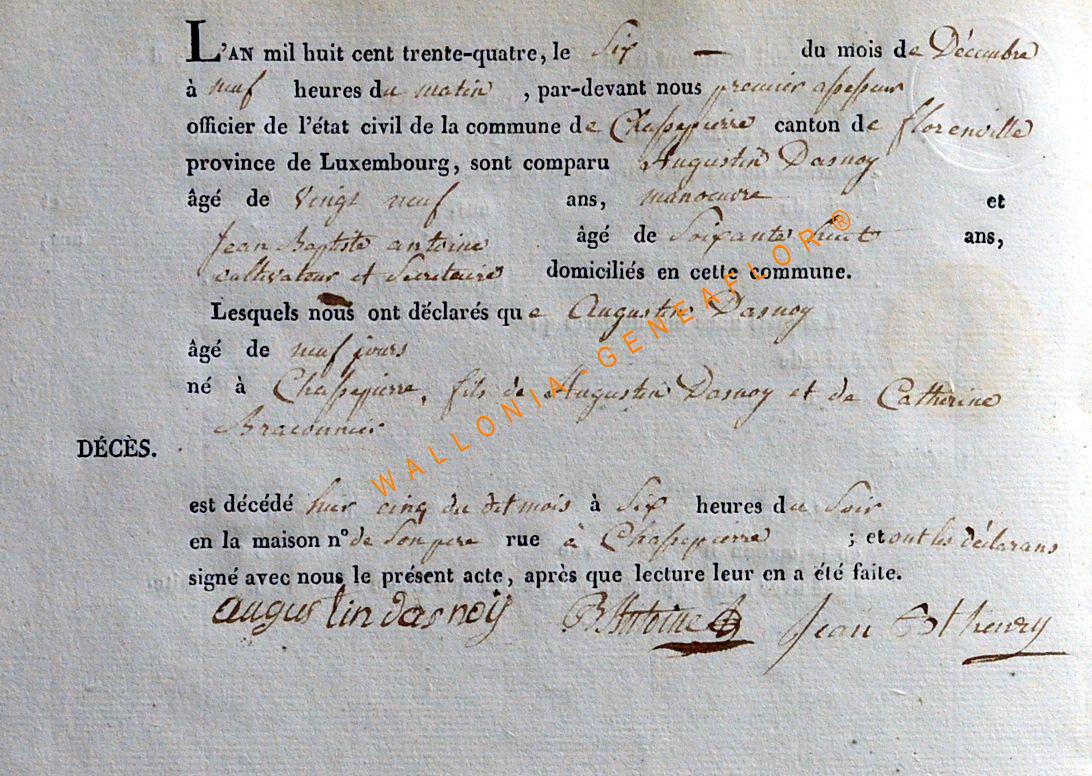 L'AN mil huit cent trente-quatre, le Six — du mois de Décembre
à neuf heures du matin , par-devant nous premier assesseur
officier de l'état civil de la commune de Chassepierre canton de florenville
province de Luxembourg, sont comparu Augustin Dasnoy
âgé de vingt neuf ans, manoeuvre et
Jean Baptiste antoine âgé de Soixante huit ans,
cultivateur et Secretaire domiciliés en cette commune.
Lesquels nous ont déclarés que Augustin Dasnoy
âgé de neuf jours
né à Chassepierre, fils de Augustin Dasnoy et de Catherine
Braconnier
DÉCÈS.
est décédé hier cinq du dit mois à Six heures du Soir
en la maison n° de Son pere rue à Chassepierre ; et ont les déclarans
signé avec nous le présent acte, après que lecture leur en a été faite.
augustin dasnoy B Antoine Jean Bt henry
WALLONIA-GENEAFLOR®